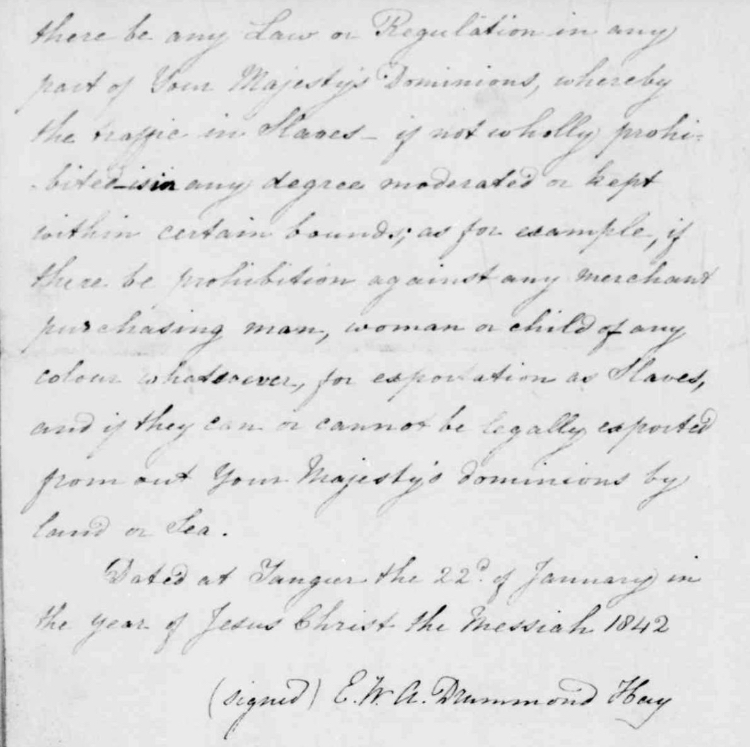 there be any Law or Regulation in any
part of Your Majesty's Dominions, whereby
the traffic in Slaves – if not wholly prohi-
-bited – is in any degree moderated or kept
within certain bounds; as for example, if
there be prohibition against any merchant
purchasing man, woman or child of any
colour whatsoever, for exportation as Slaves,
and if they can or cannot be legally exported
from out Your Majesty's dominions by
land or Sea.
Dated at Tangier the 22d. of January in
the year of Jesus Christ the Messiah 1842
(signed) E. W. A. Drummond Hay